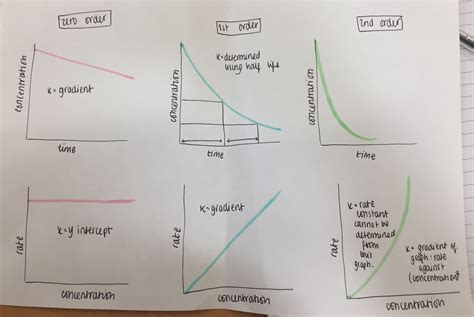 zero order
1st order
2nd order
concentration
K = gradient
time
concentration
K = determined
using half life
time
concentration
time
rate
K = y intercept
concentration
rate
K = gradient
concentration
rate
K = rate
constant
cannot be
determined
from
this
graph.
K = gradient of
graph = rate
against
(concentration)²
concentration